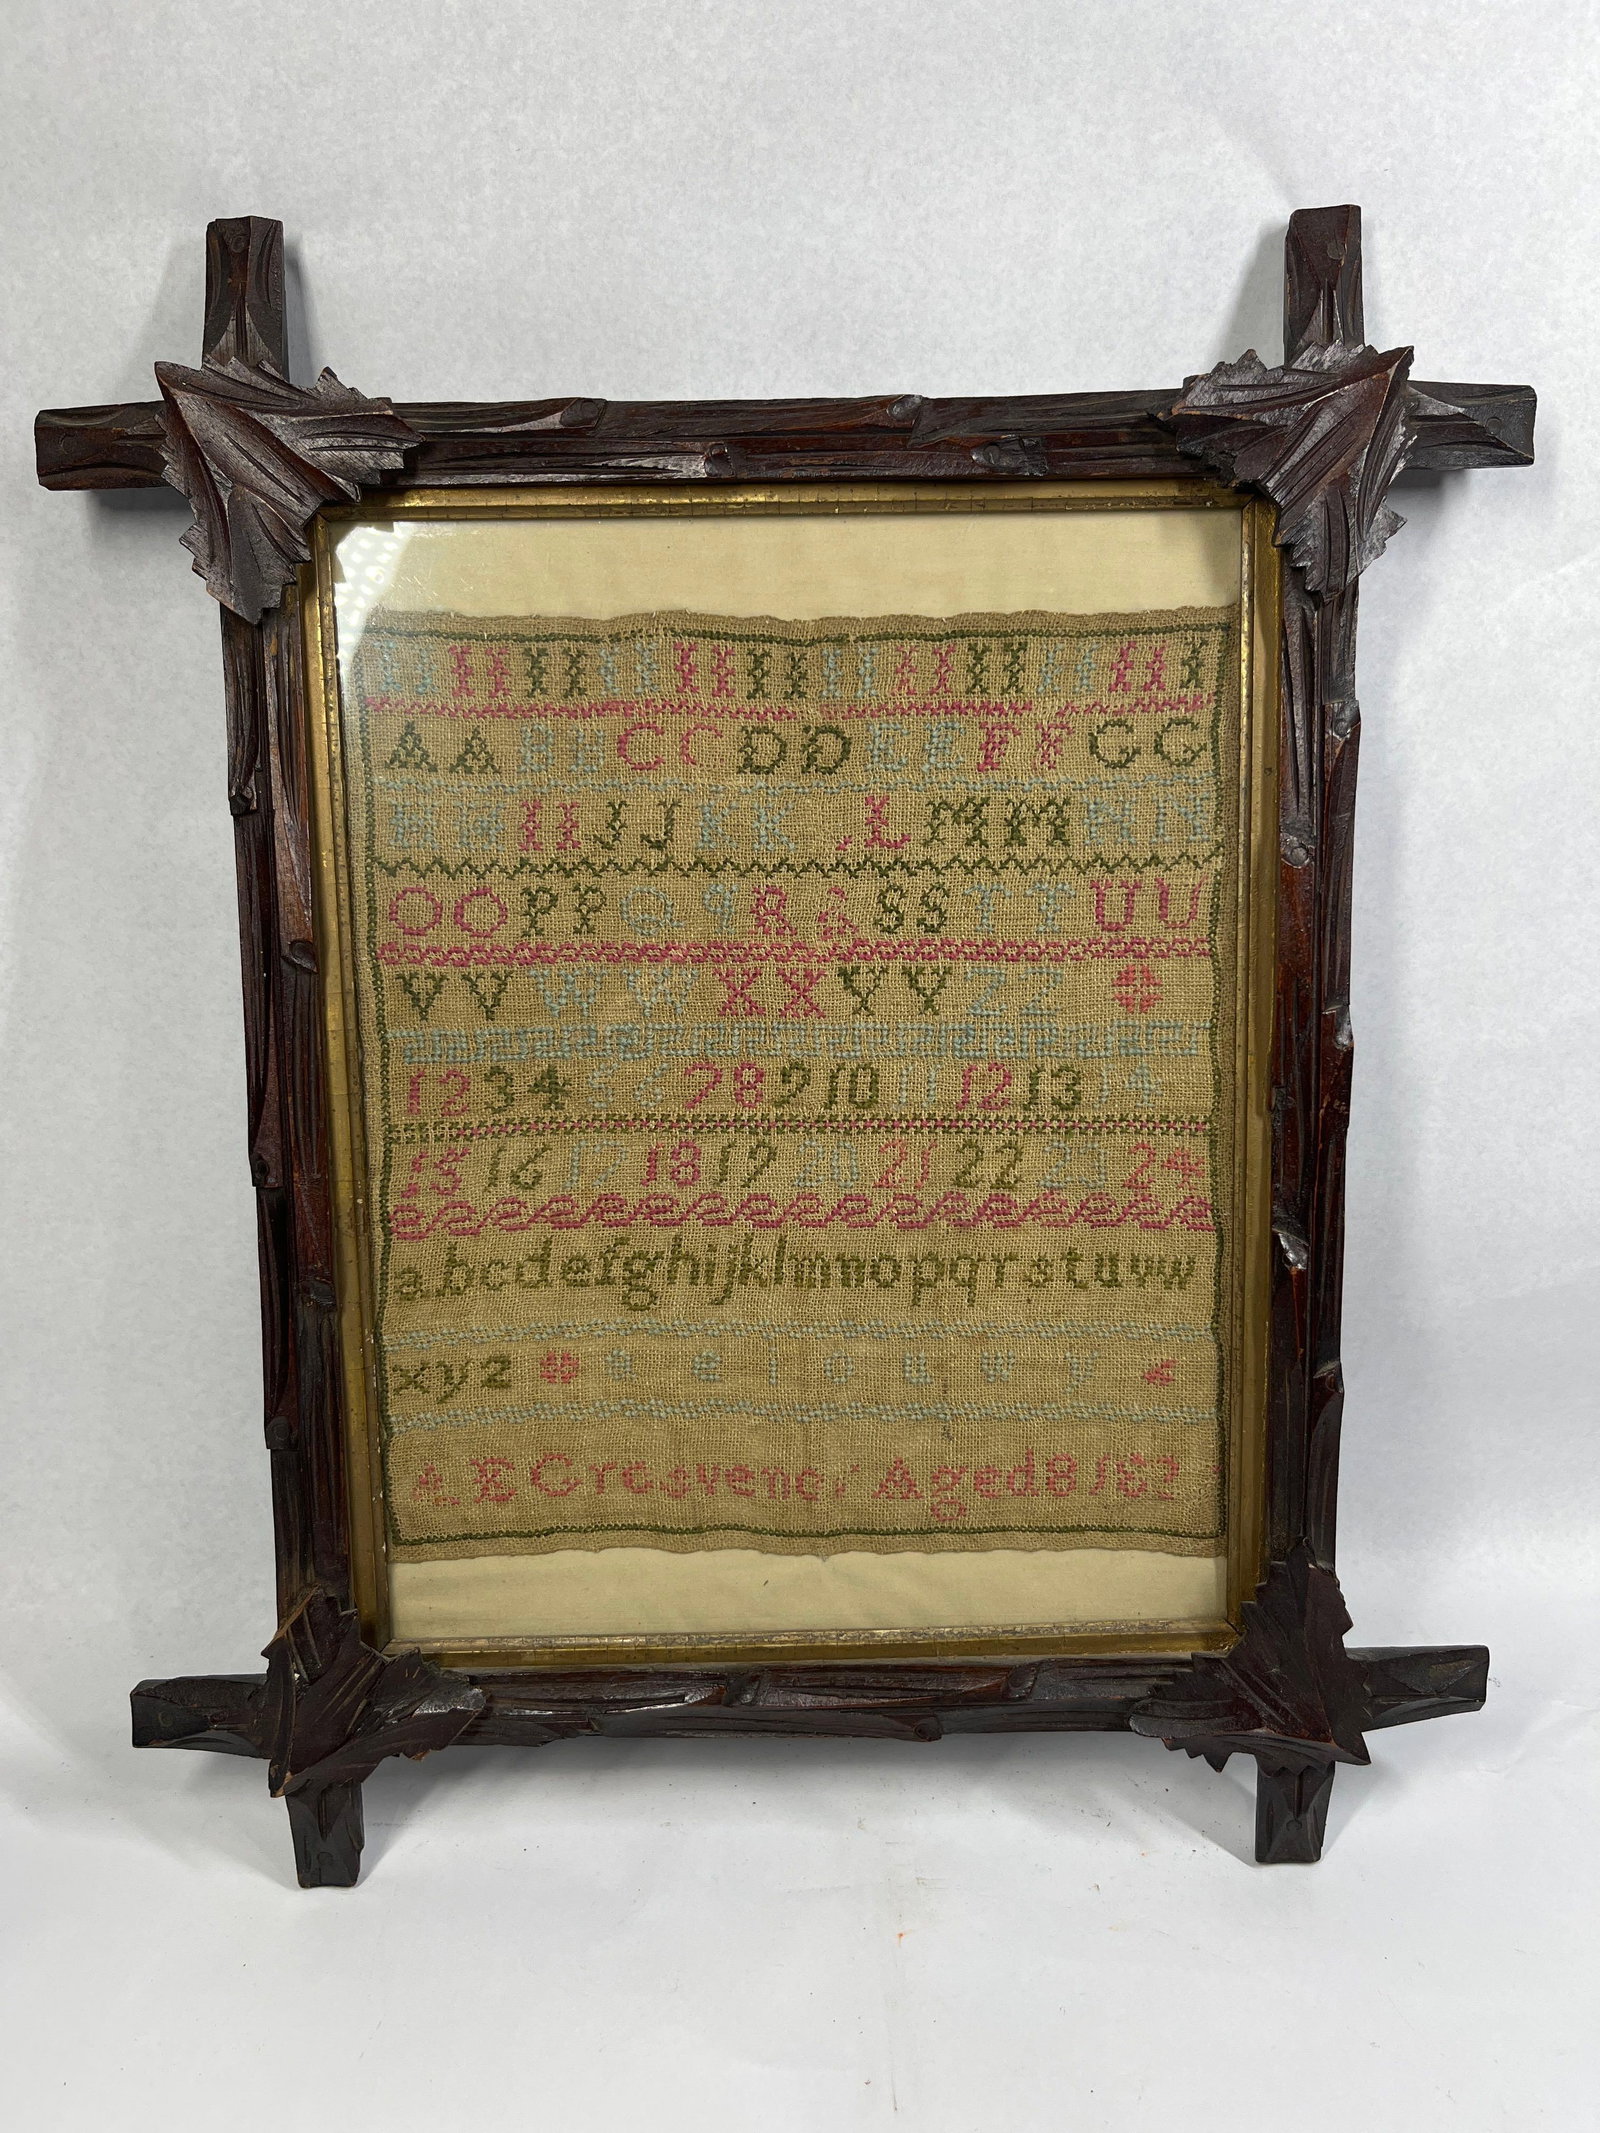 AABBCCDDEEFFGG
HHIIJJKK LMMNN
OOPPQqRRSSTTUU
VVWWXXYYZZ
1 2 3 4 5 6 7 8 9 10 11 12 13 14
15 16 17 18 19 20 21 22 23 24
abcdefghijklmnopqrstuvw
xyz a e i o u w y
A E Grosvenor Aged 8